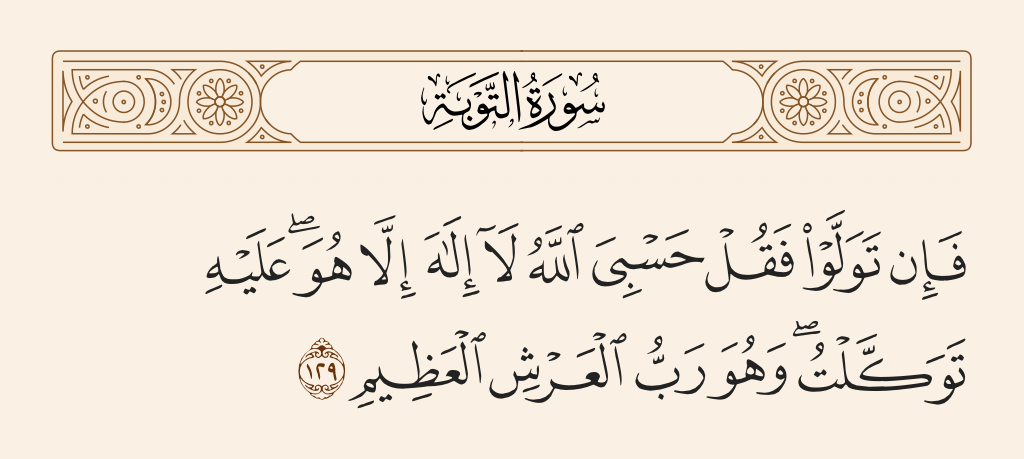 سُورَةُ التَّوْبَةِ
فَإِن تَوَلَّوْا۟ فَقُلْ حَسْبِىَ ٱللَّهُ لَآ إِلَٰهَ إِلَّا هُوَ ۖ عَلَيْهِ
تَوَكَّلْتُ ۖ وَهُوَ رَبُّ ٱلْعَرْشِ ٱلْعَظِيمِ ١٢٩